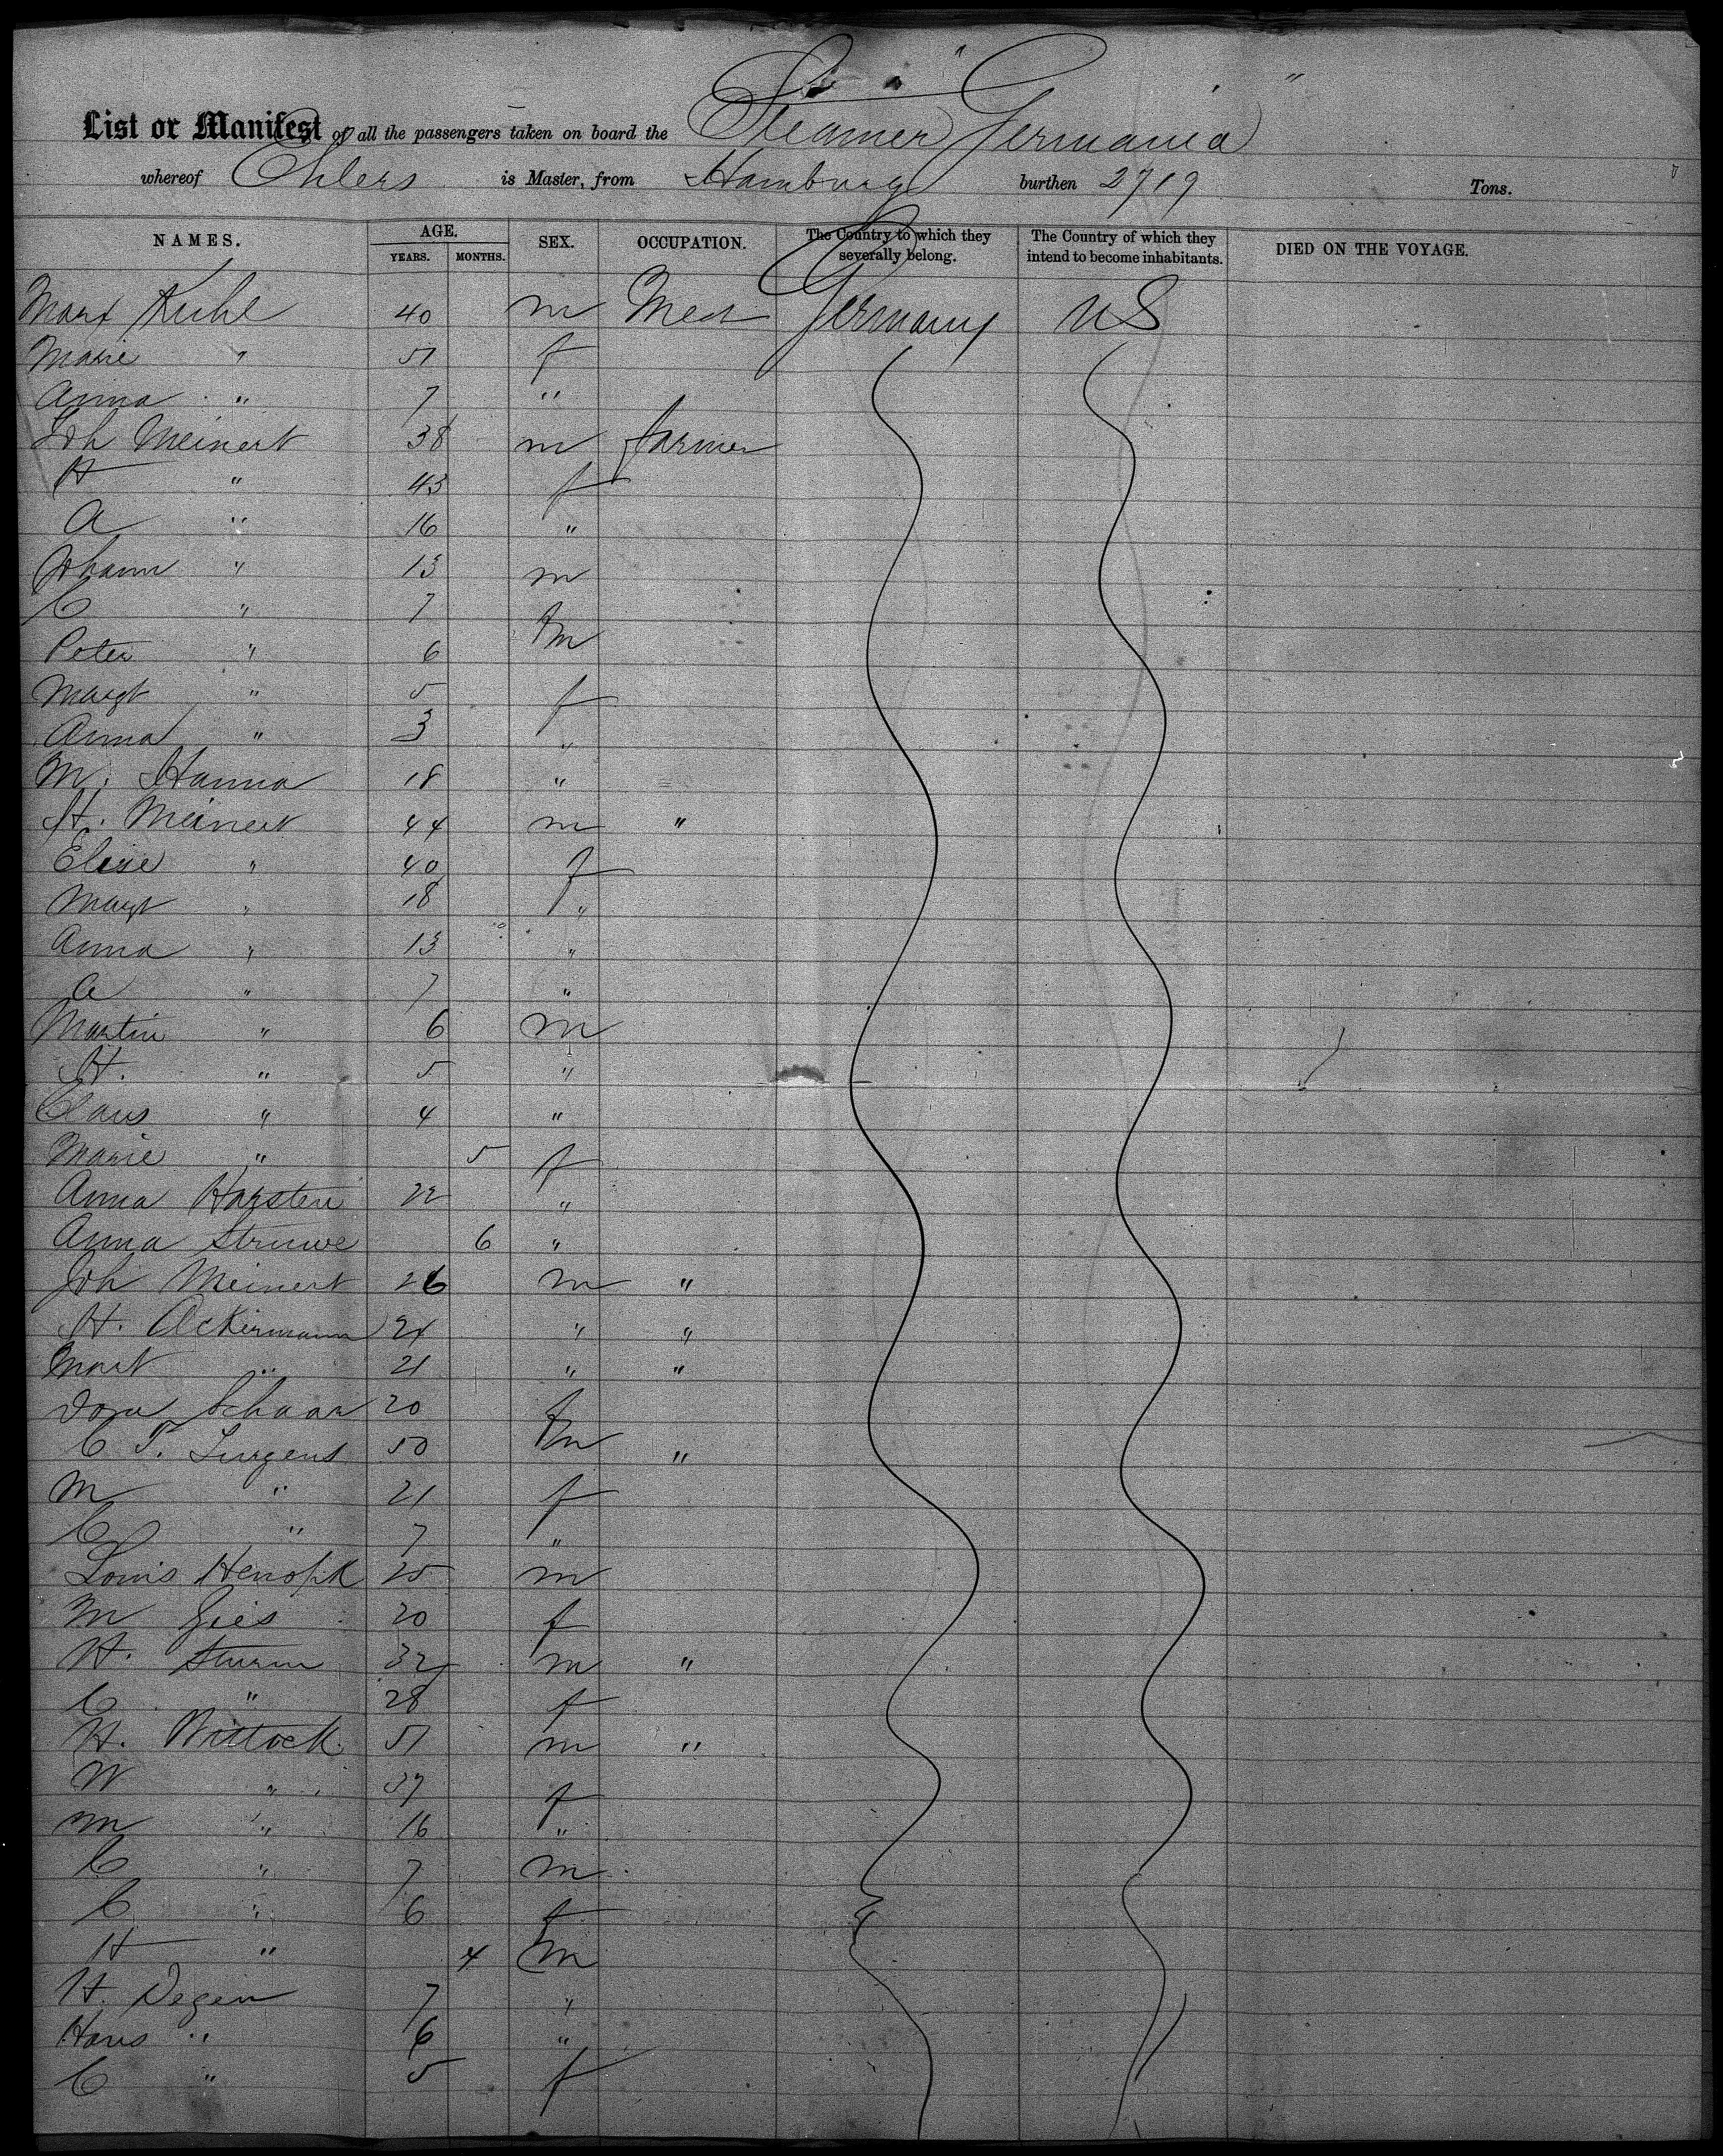 List or Manifest of all the passengers taken on board the Steamer "Germania"
whereof Ehlers is Master, from Hamburg burthen 2719 Tons.
NAMES. AGE. YEARS. MONTHS. SEX. OCCUPATION. The Country to which they severally belong. The Country of which they intend to become inhabitants. DIED ON THE VOYAGE.
Marx Kuhl 40 m Germany US
Marie " 51 f
Anna " 7 "
Joh Meinert 38 m farmer
H " 43 f
A " 16 "
Johann " 13 m
C " 7
Peter " 6 m
Margt " 5 f
Anna " 3 "
M. Hanna 18 "
H. Meinert 44 m "
Elise " 40 f
Margt " 18 "
Anna " 13 "
A " 7 "
Martin " 6 m
H. " 5 "
Claus " 4 "
Marie " 5 f
Anna Harsten 22 "
Anna Struwe 6 "
Joh Meinert 26 m "
H. Ackermann 24 " "
Mart " 21 " "
Dora Schaar 20 f
C T. Jurgens 50 m "
M " 21 f
C " 7 "
Louis 25 m
M Gies 20 f
H. Sturm 32 m "
C " 28 f
H. Wittock 51 m "
W " 37 f
M " 16 "
C " 7 m
C " 6 f
H " 4 m
H. Degen 7 "
Hans " 6 "
C " 5 f